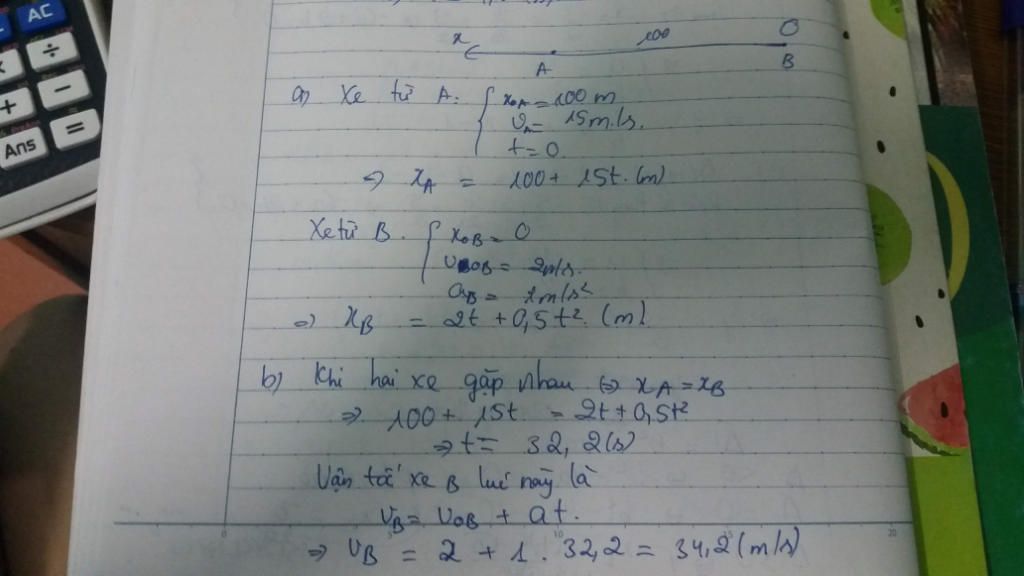 AC
÷
−
+
=
Ans
x 100 O
A B
a) Xe từ A: x₀A = 100 m
vA = 15 m/s.
t = 0
⇒ xA = 100 + 15t (m)
Xe từ B. x₀B = 0
v₀B = 2m/s.
aB = 1m/s²
⇒ xB = 2t + 0,5t² (m)
b) Khi hai xe gặp nhau ⇔ xA = xB
⇒ 100 + 15t = 2t + 0,5t²
⇒ t = 32,2(s)
Vận tốc xe B lúc này là
vB = v₀B + at.
⇒ vB = 2 + 1 . 32,2 = 34,2 (m/s)
0 5 10 15 20